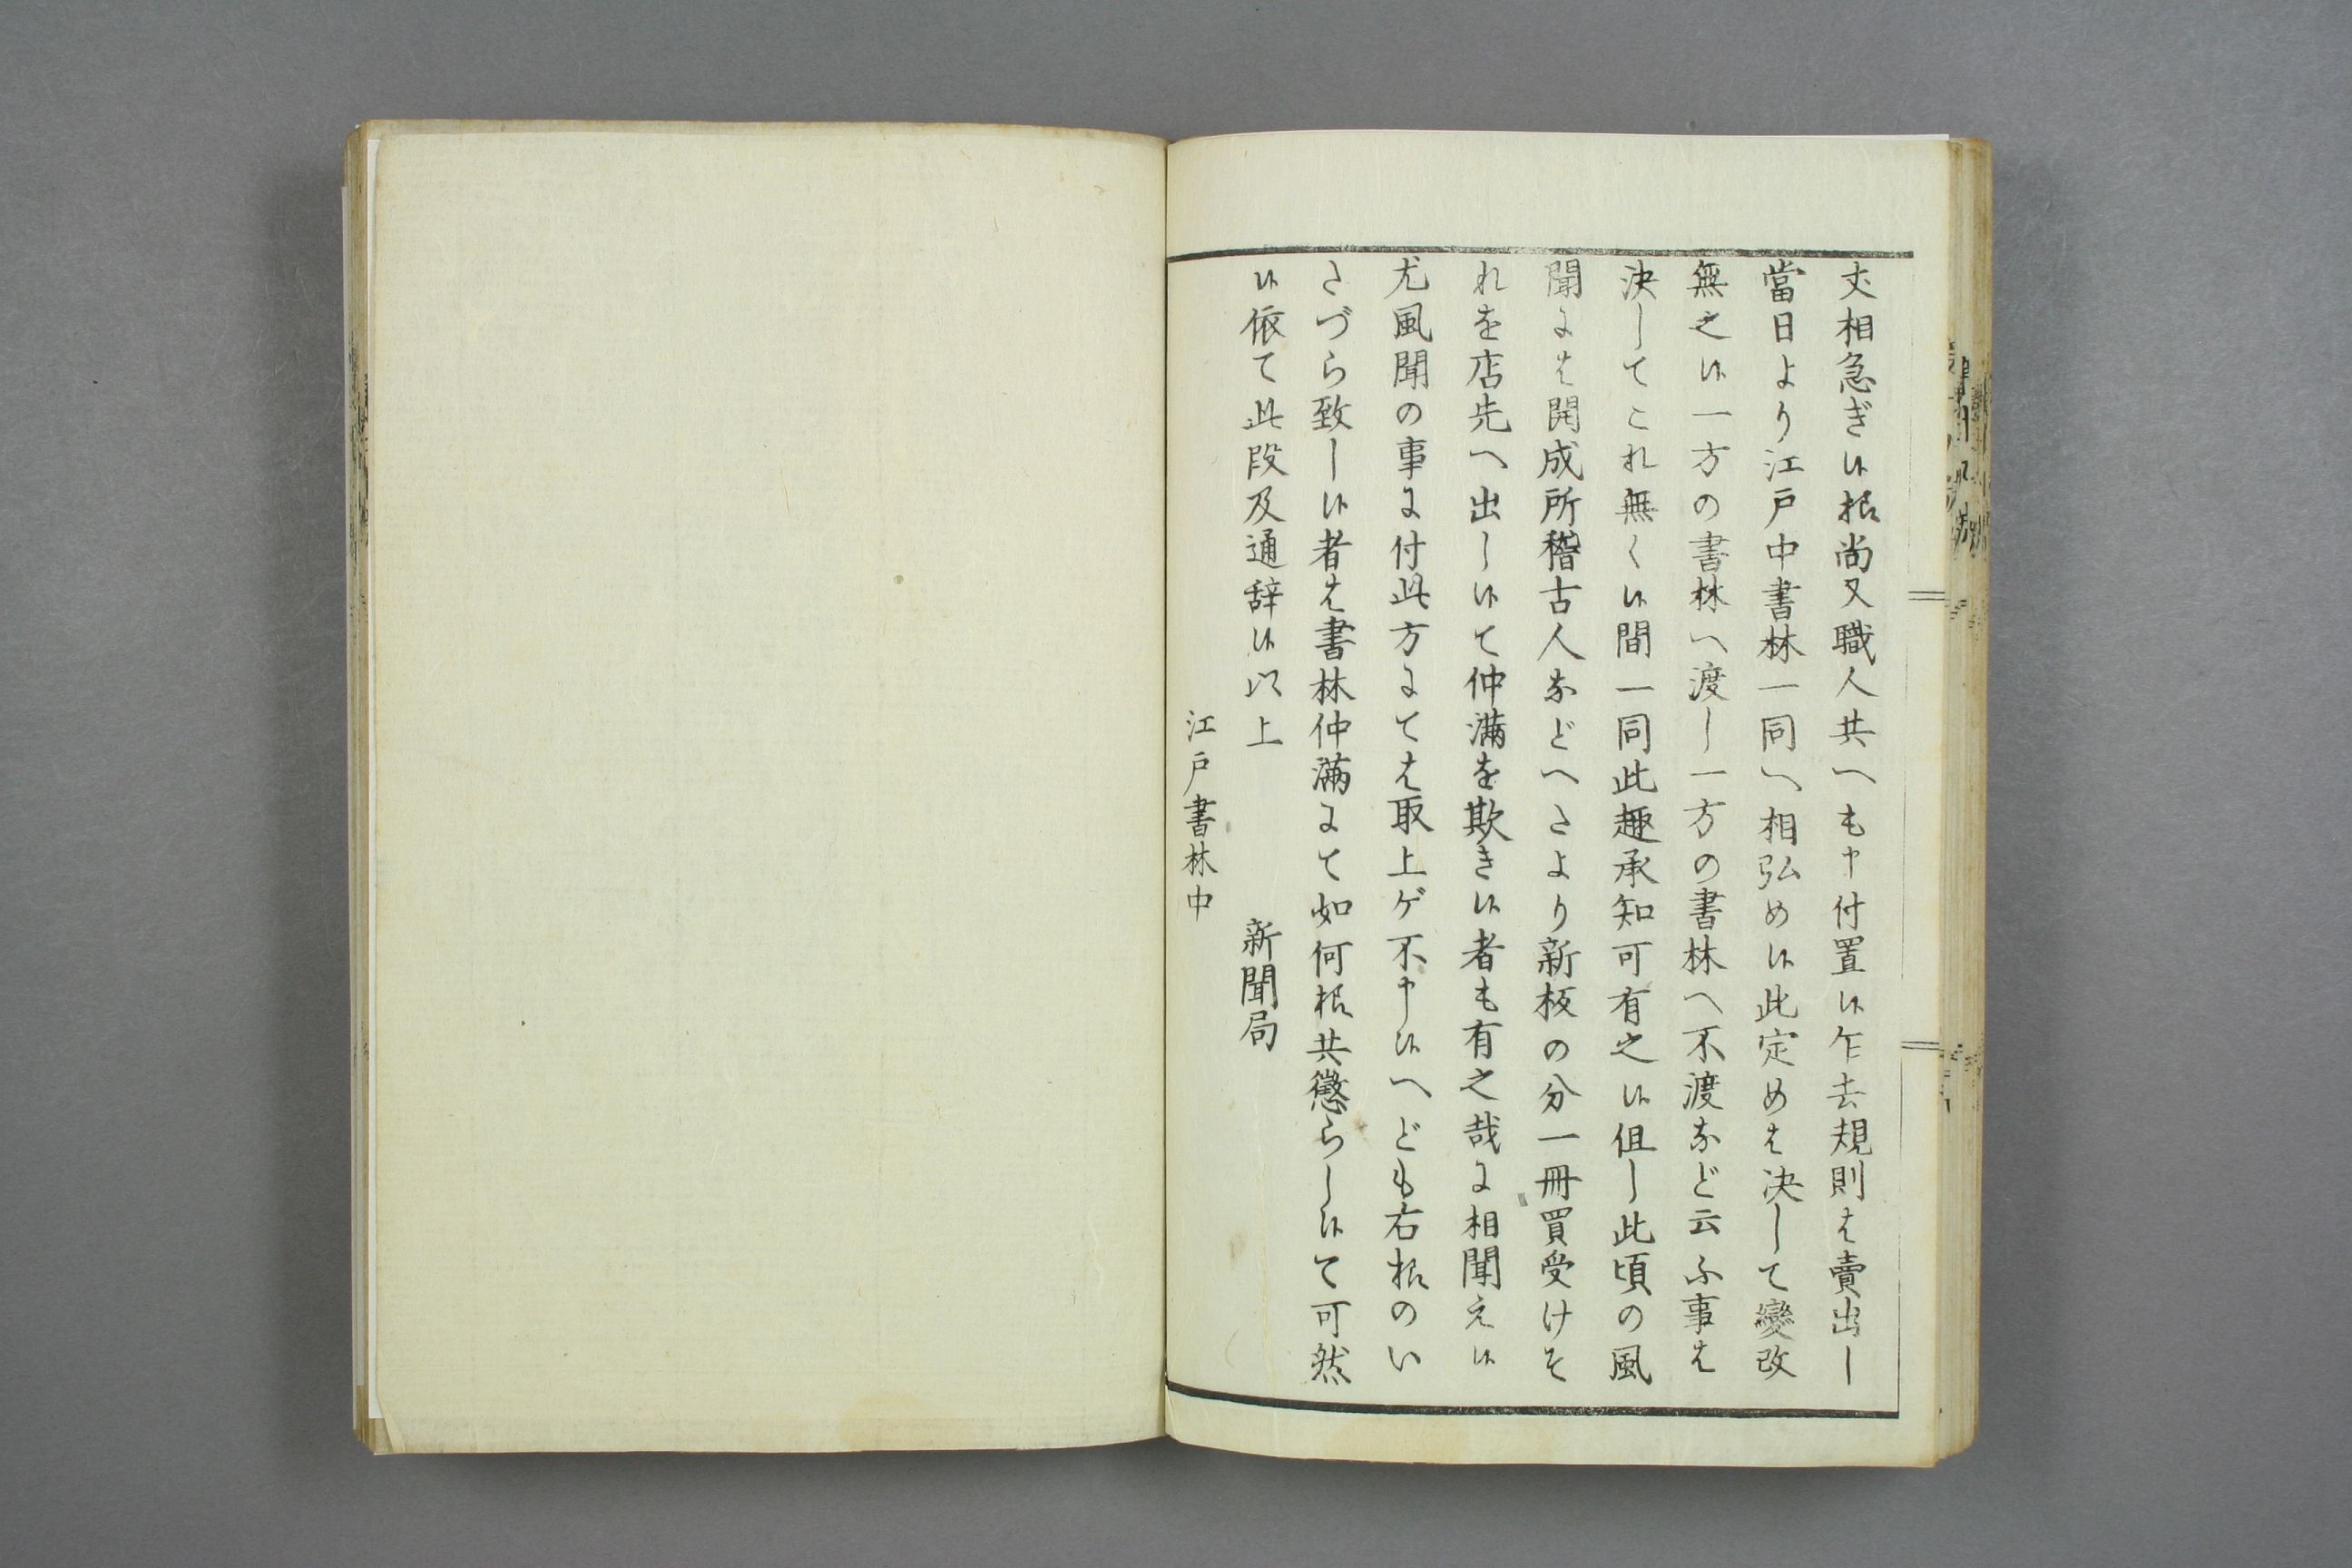 丈相急ぎ候様尚又職人共へも申付置候乍去規則は賣出し
當日より江戸中書林一同へ相弘め候此定めは決して變改
無之候一方の書林へ渡し一方の書林へ不渡など云ふ事は
決してこれ無く候間一同此趣承知可有之候但し此頃の風
聞には開成所稽古人などへたより新板の分一冊買受けそ
れを店先へ出し候て仲満を欺き候者も有之哉に相聞え候
尤風聞の事に付此方にては取上ゲ不申候へども右様のい
たづら致し候者は書林仲満にて如何様共懲らし候て可然
候依て此段及通辞候以上
新聞局
江戸書林中